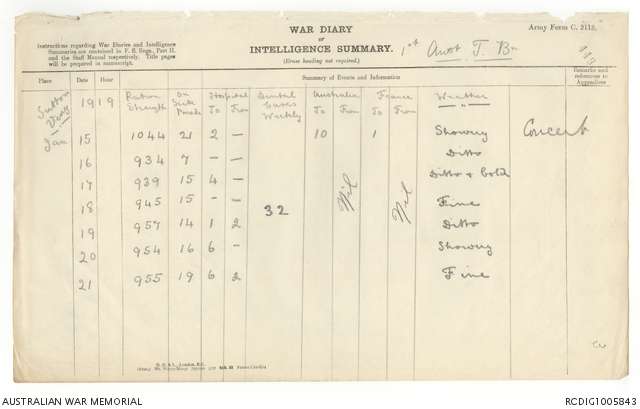 WAR DIARY
or
INTELLIGENCE SUMMARY.
(Erase heading not required.)
Army Form C. 2118.
Instructions regarding War Diaries and Intelligence
Summaries are contained in F. S. Regs., Part II.
and the Staff Manual respectively. Title pages
will be prepared in manuscript.
1st Aust T. Bn
Place Date Hour Summary of Events and Information Remarks and references to Appendices
Sutton Veny 1919 Ration Strength On Sick Parade Hospital To From Dental Cases Weekly Australia To From France To From Weather
Jan 15 1044 21 2 — 10 1 Showery Concert
16 934 7 — Ditto
17 939 15 4 — Ditto & Cold
18 945 15 — 32 Nil Nil Fine
19 957 14 1 2 Ditto
20 954 16 6 — Showery
21 955 19 6 2 Fine
AUSTRALIAN WAR MEMORIAL
RCDIG1005843